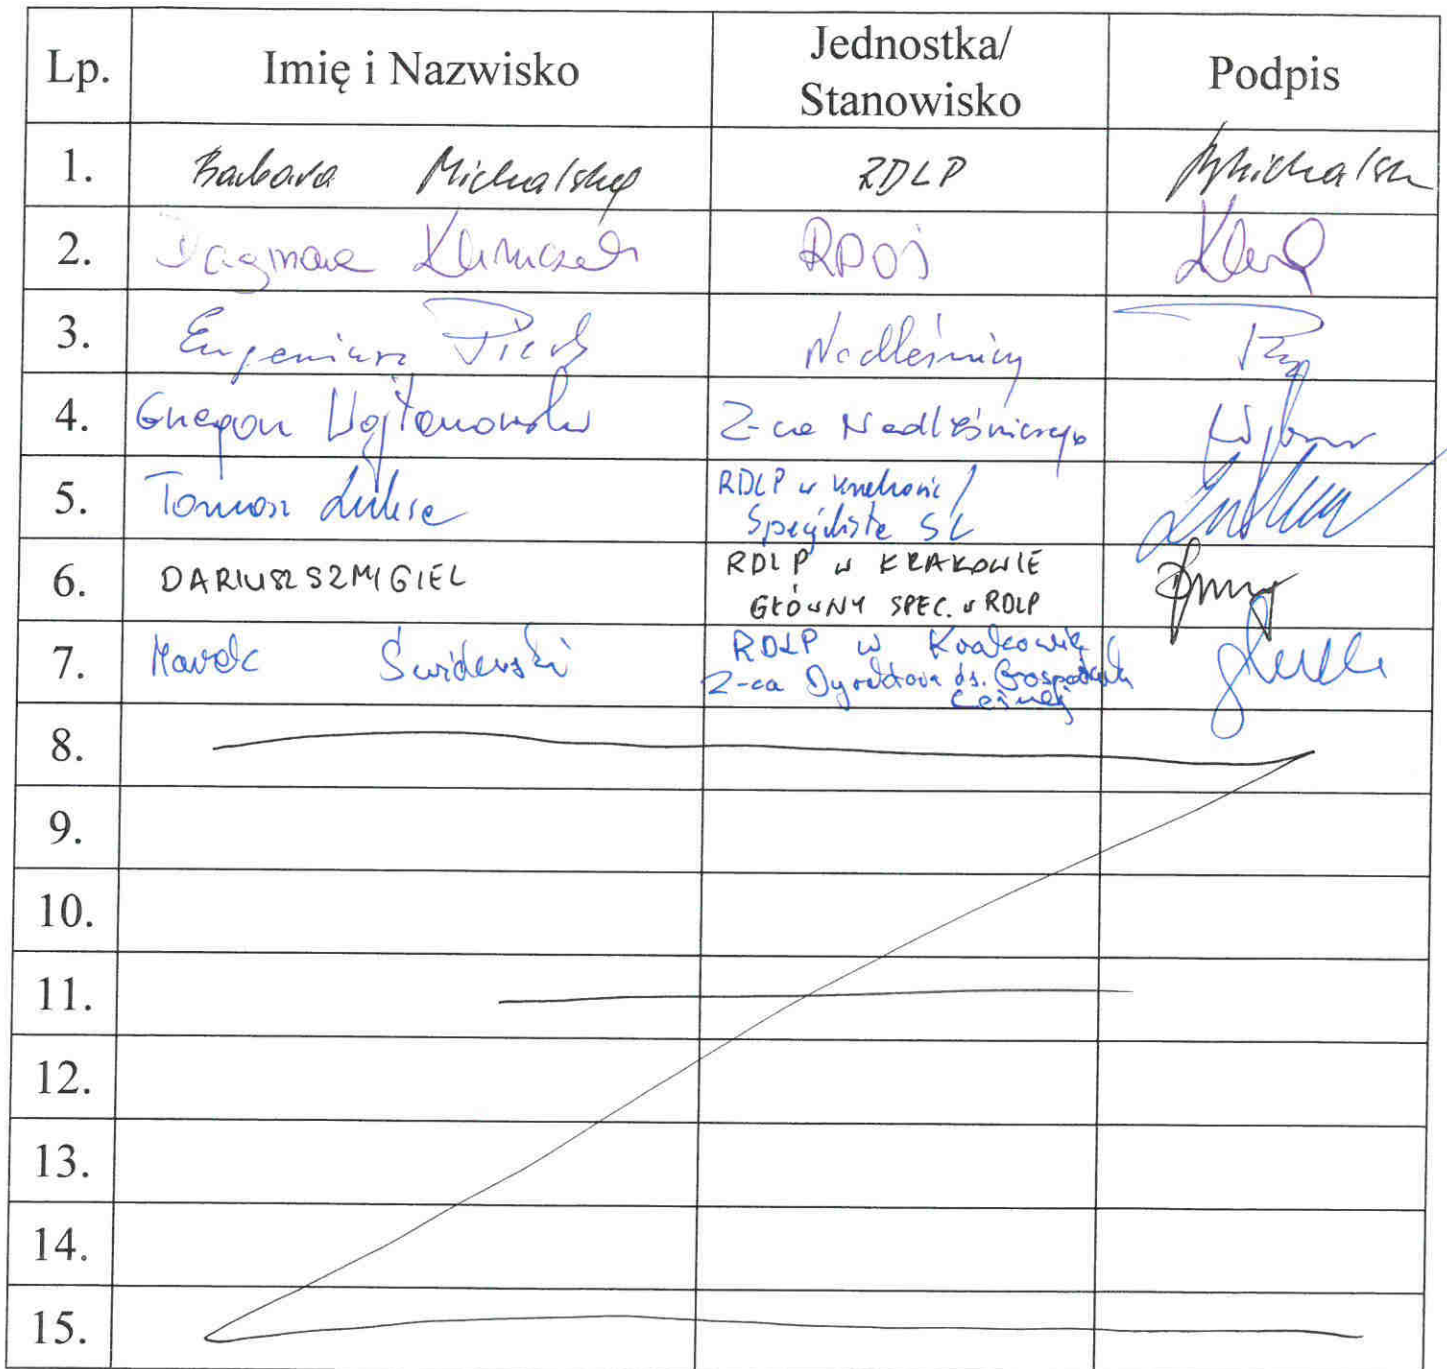 Lp. Imię i Nazwisko Jednostka/ Stanowisko Podpis
1. Barbara Michalska RDLP
2. Dagmara Klimczak RDOŚ
3. Eugeniusz Piech Nadleśniczy
4. Grzegorz Wojtanowski Z-ca Nadleśniczego
5. Tomasz RDLP w Krakowie/
Specjalista SL
6. DARIUSZ SZMIGIEL RDLP w KRAKOWIE
GŁÓWNY SPEC. w RDLP
7. Marek Świderski RDLP w Krakowie
Z-ca Dyrektora ds. Gospodarki
Leśnej
8.
9.
10.
11.
12.
13.
14.
15.